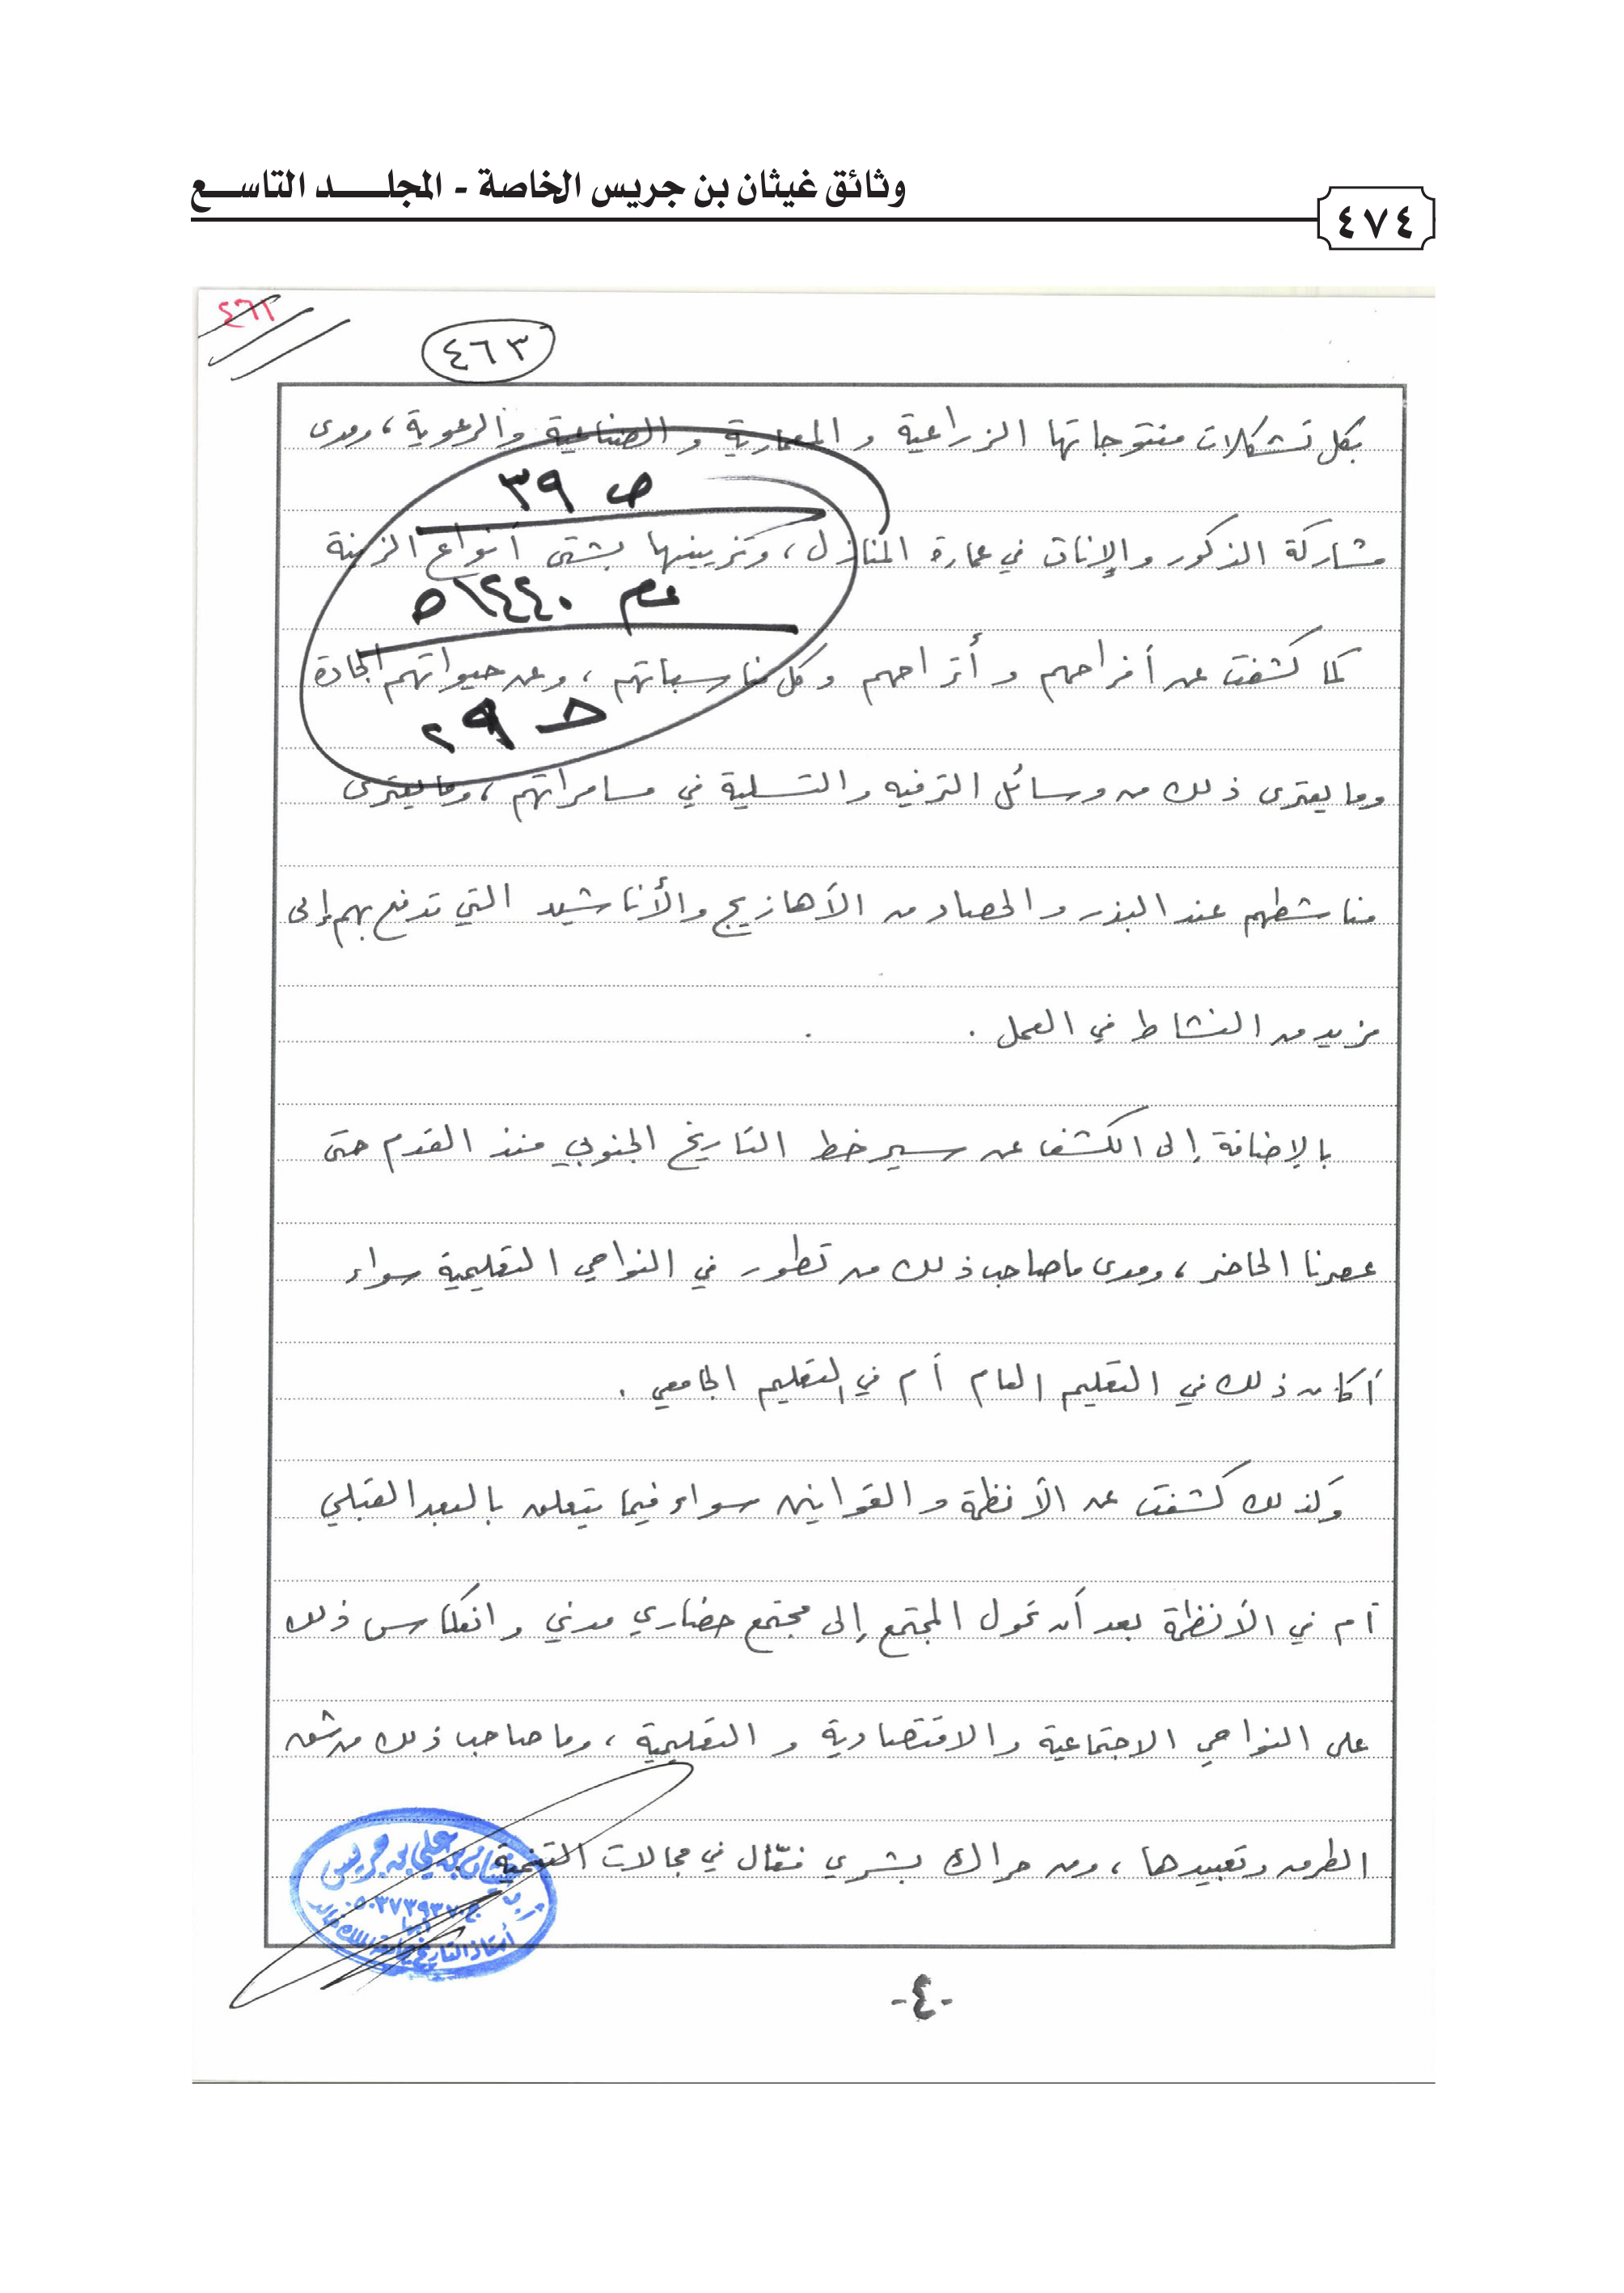 وثائق غيثان بن جريس الخاصة - المجلد التاسع
٤٧٤
٤٦٢
٤٦٣
بكل تشكلات منتوجاتها الزراعية والمعمارية والصناعية والرعوية، ومدى
ص ٣٩
مشاركة الذكور والإناث في عمارة المنازل، وتزيينها بشتى أنواع الزينة
عام ١٤٤٠هـ
كما كشفت عن أفراحهم وأتراحهم وكل مناسباتهم، وعن حيواتهم الجادة
وما يعترى ذلك من وسائل الترفيه والتسلية في مسامراتهم، وما يعترى
مناشطهم عند البذر والحصاد من الأهازيج والأناشيد التي تدفع بهم إلى
مزيد من النشاط في العمل.
بالإضافة إلى الكشف عن سير خط التاريخ الجنوبي منذ القدم حتى
عصرنا الحاضر، ومدى ما صاحب ذلك من تطور في النواحي التعليمية سواء
أكان ذلك في التعليم العام أم في التعليم الجامعي.
وكذلك كشفت عن الأنظمة والقوانين سواء فيما يتعلق بالبعد القبلي
أم في الأنظمة بعد أن تحول المجتمع إلى مجتمع حضاري مدني وانعكاس ذلك
على النواحي الاجتماعية والاقتصادية والتعليمية، وما صاحب ذلك من شق
الطرق وتعبيدها، ومن حراك بشري فعّال في مجالات التنمية.
غيثان بن علي بن جريس
أبها
أستاذ التاريخ بجامعة الملك خالد
-٤-